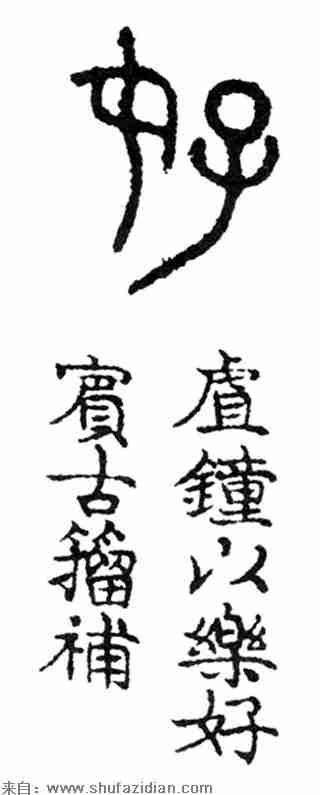 好
虘鐘以樂好
賓古籀補
来自：www.shufazidian.com